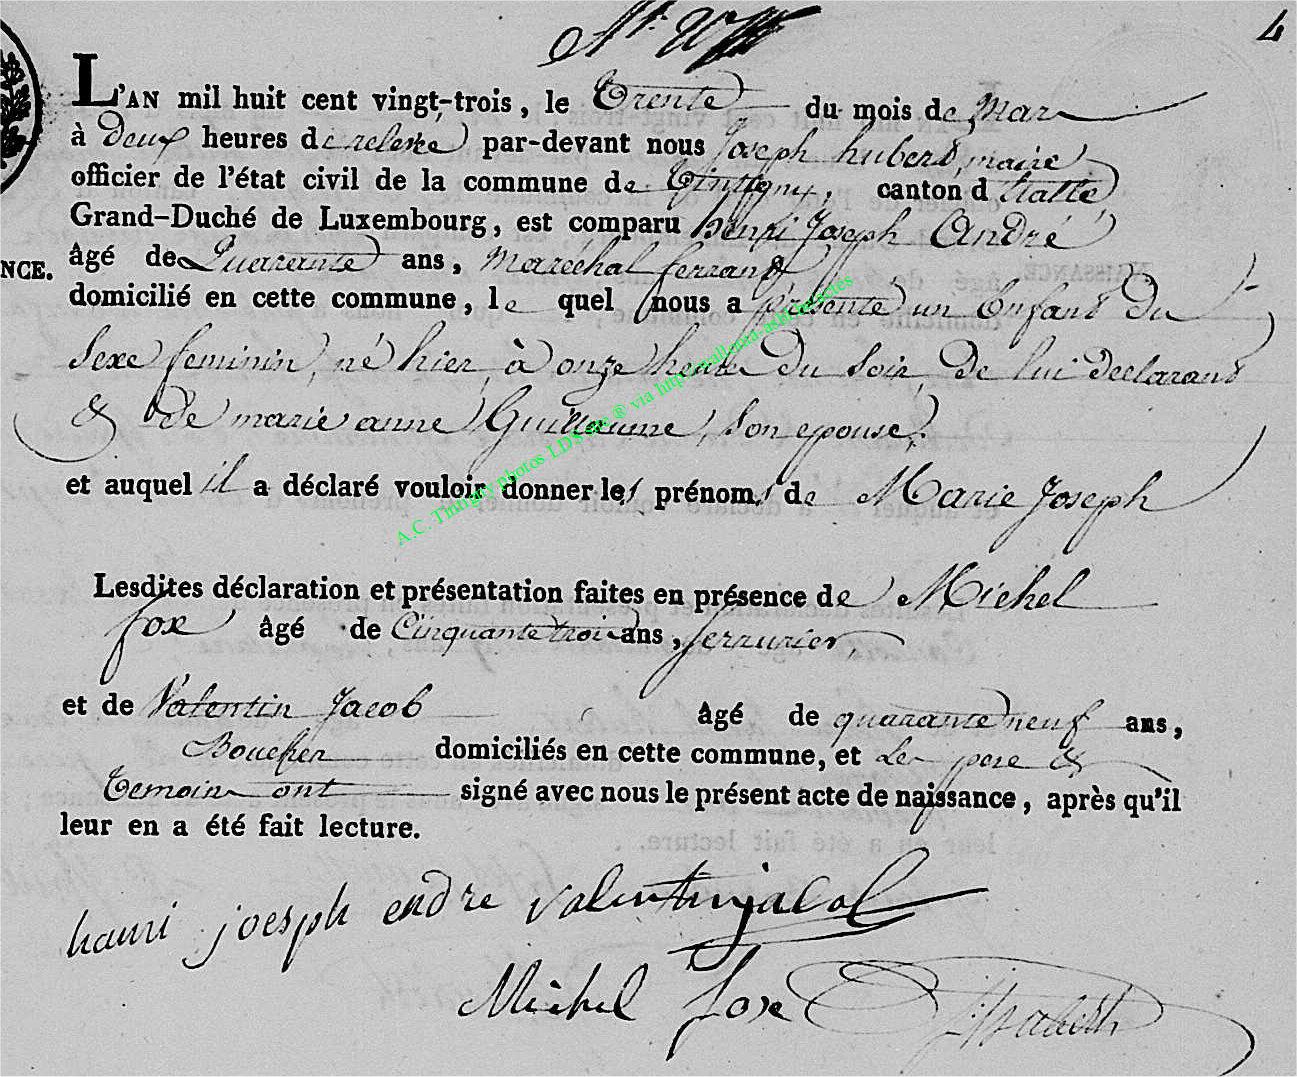 4
L'AN mil huit cent vingt-trois, le Trente du mois de Mars
à Deux heures de relevée par-devant nous Joseph hubert, maire
officier de l'état civil de la commune de Tintigny, canton d'Etalle
Grand-Duché de Luxembourg, est comparu henri Joseph André
NCE. âgé de Quarante ans, Maréchal ferrant
domicilié en cette commune, le quel nous a présenté un Enfant du
Sexe feminin, né hier, à onze heures du soir, De lui declarant
& De marie anne Guillaume, son epouse,
et auquel il a déclaré vouloir donner les prénoms de Marie Joseph
A.C. Tintigny photos LDS ® via http
Lesdites déclaration et présentation faites en présence de Michel
fox âgé de Cinquante trois ans, serrurier
et de Valentin Jacob âgé de quarante neuf ans,
Boucher domiciliés en cette commune, et Les pere &
Temoins ont signé avec nous le présent acte de naissance, après qu'il
leur en a été fait lecture.
hanri joesph endre valentin jacob
Michel foxe JHubert